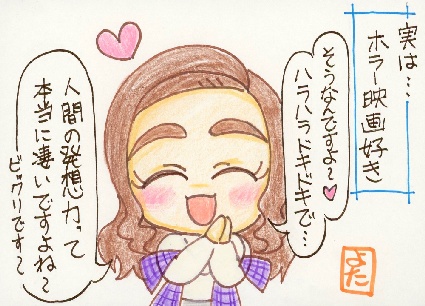 実は…
ホラー映画好き
そうなんですよ～♥
ハラハラドキドキで…
人間の発想力って
本当に凄いですよね～
ビックリです～